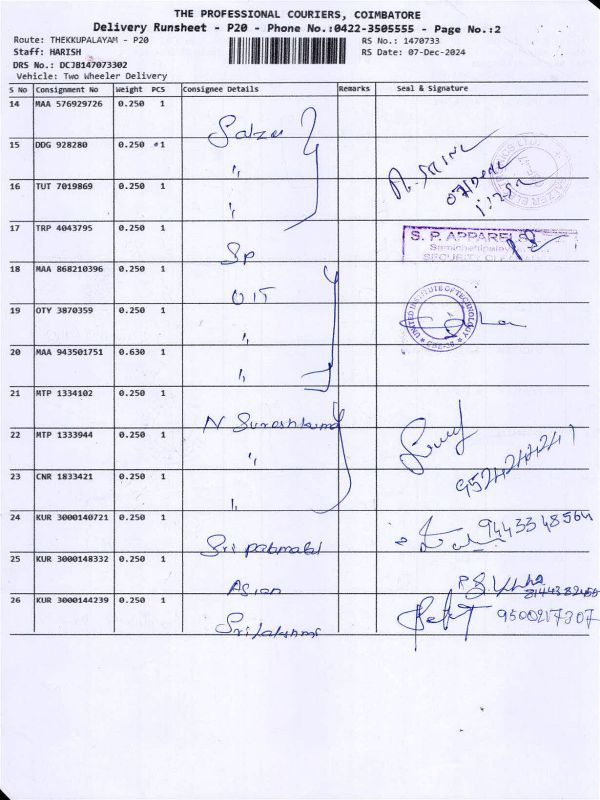 THE PROFESSIONAL COURIERS, COIMBATORE
Delivery Runsheet - P20 - Phone No.:0422-3505555 - Page No.:2
Route: THEKKUPALAYAM - P20
RS No.: 1470733
Staff: HARISH
RS Date: 07-Dec-2024
DRS No.: DCJB147073302
Vehicle: Two Wheeler Delivery
S No Consignment No Weight PCS Consignee Details Remarks Seal & Signature
14 MAA 576929726 0.250 1 Salzer
15 DDG 928280 0.250 1 "
16 TUT 7019869 0.250 1 "
17 TRP 4043795 0.250 1 Sp S. P. APPARELS
18 MAA 868210396 0.250 1 UIT
19 OTY 3870359 0.250 1 " UNITED INSTITUTE OF TECHNOLOGY
20 MAA 943501751 0.630 1 "
21 MTP 1334102 0.250 1 N Sureshkumar
22 MTP 1333944 0.250 1 "
23 CNR 1833421 0.250 1 "
24 KUR 3000140721 0.250 1 Sri pabmabal 9443348564
25 KUR 3000148332 0.250 1 Asian
26 KUR 3000144239 0.250 1 Sri lakshmi 9500217307